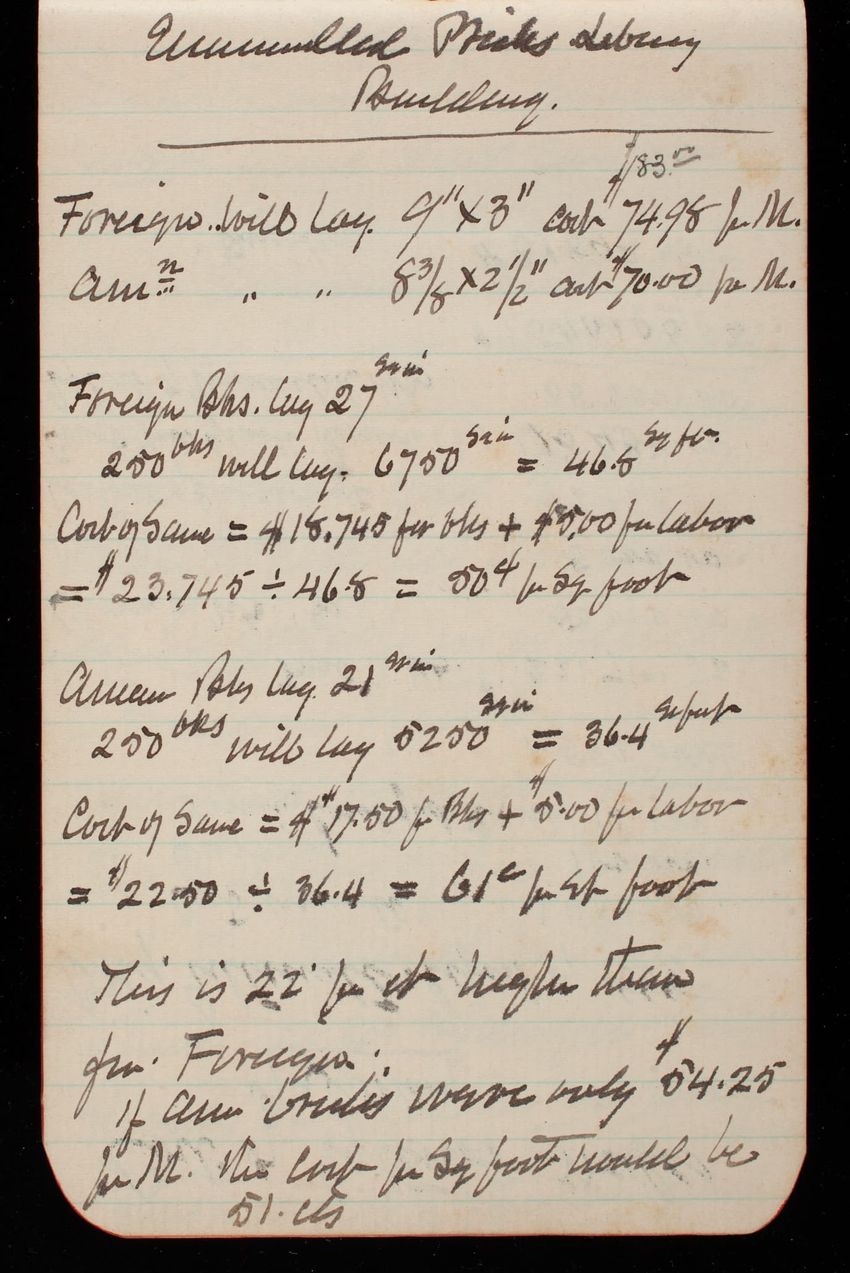 Enamelled Bricks Library
Building.
$83.00
Foreign. will lay. 9" x 3" cost $74.98 per M.
Amn " " 8 3/8 x 2 1/2" cost $70.00 per M.
Foreign Bks. lay 27 sq in
250 bks will lay. 6750 sq in = 46.8 sq ft.
Cost of Same = $18.745 for bks + $5.00 for labor
= $23.745 ÷ 46.8 = 50¢ per Sq foot
Amean Bks lay 21 sq in
250 bks will lay 5250 sq in = 36.4 Sq feet
Cost of Same = $17.50 for Bks + $5.00 for labor
= $22.50 ÷ 36.4 = 61c per sq foot
This is 22 per ct higher than
for Foreign.
If Am bricks were only $54.25
per M. the Cost per Sq foot would be
51. cts